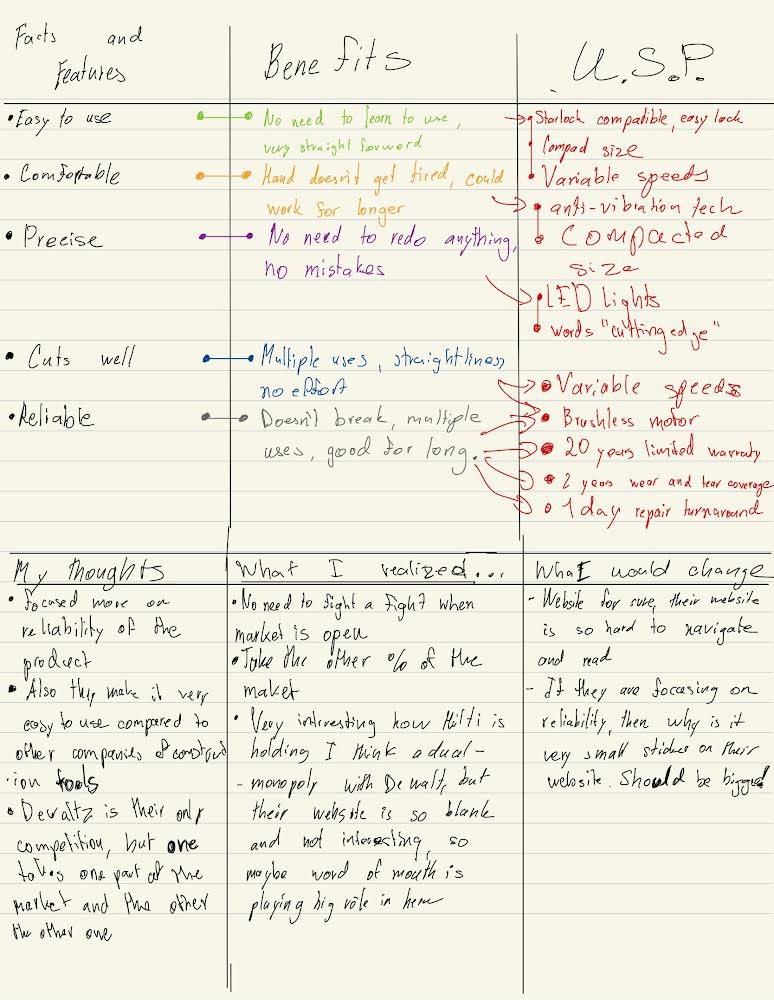 Facts and
Features
• Easy to use
• Comfortable
• Precise
• Cuts well
• Reliable
Benefits
No need to learn to use,
very straight forword
Hand doesn't get tired, could
work for longer
No need to redo anything,
no mistakes
Multiple uses, straightliness
no effort
Doesn't break, multiple
uses, good for long.
U.S.P.
Starlock compatible, easy lock
Compad size
Variable speeds
anti-vibration tech
Compacted
size
LED lights
words "cutting edge"
Variable speeds
Brushless motor
20 years limited warraty
2 years wear and tear coverage
1 day repair turnaround
My thoughts
• focused more on
reliability of the
product
• Also they make it very
easy to use compared to
other companies of construct
ion tools
• Dewaltz is their only
competition, but one
takes one part of the
market and the other
the other one
What I realized...
• No need to fight a fight when
market is open
• Take the other % of the
market
• Very interesting how Hilti is
holding I think a dual-
- monopoly with Dewalt, but
their website is so blank
and not interesting, so
maybe word of mouth is
playing big role in here
What I would change
- Website for sure, their website
is so hard to navigate
and read
- If they are focasing on
reliability, then why is it
very small sticker on their
website. Should be bigger!